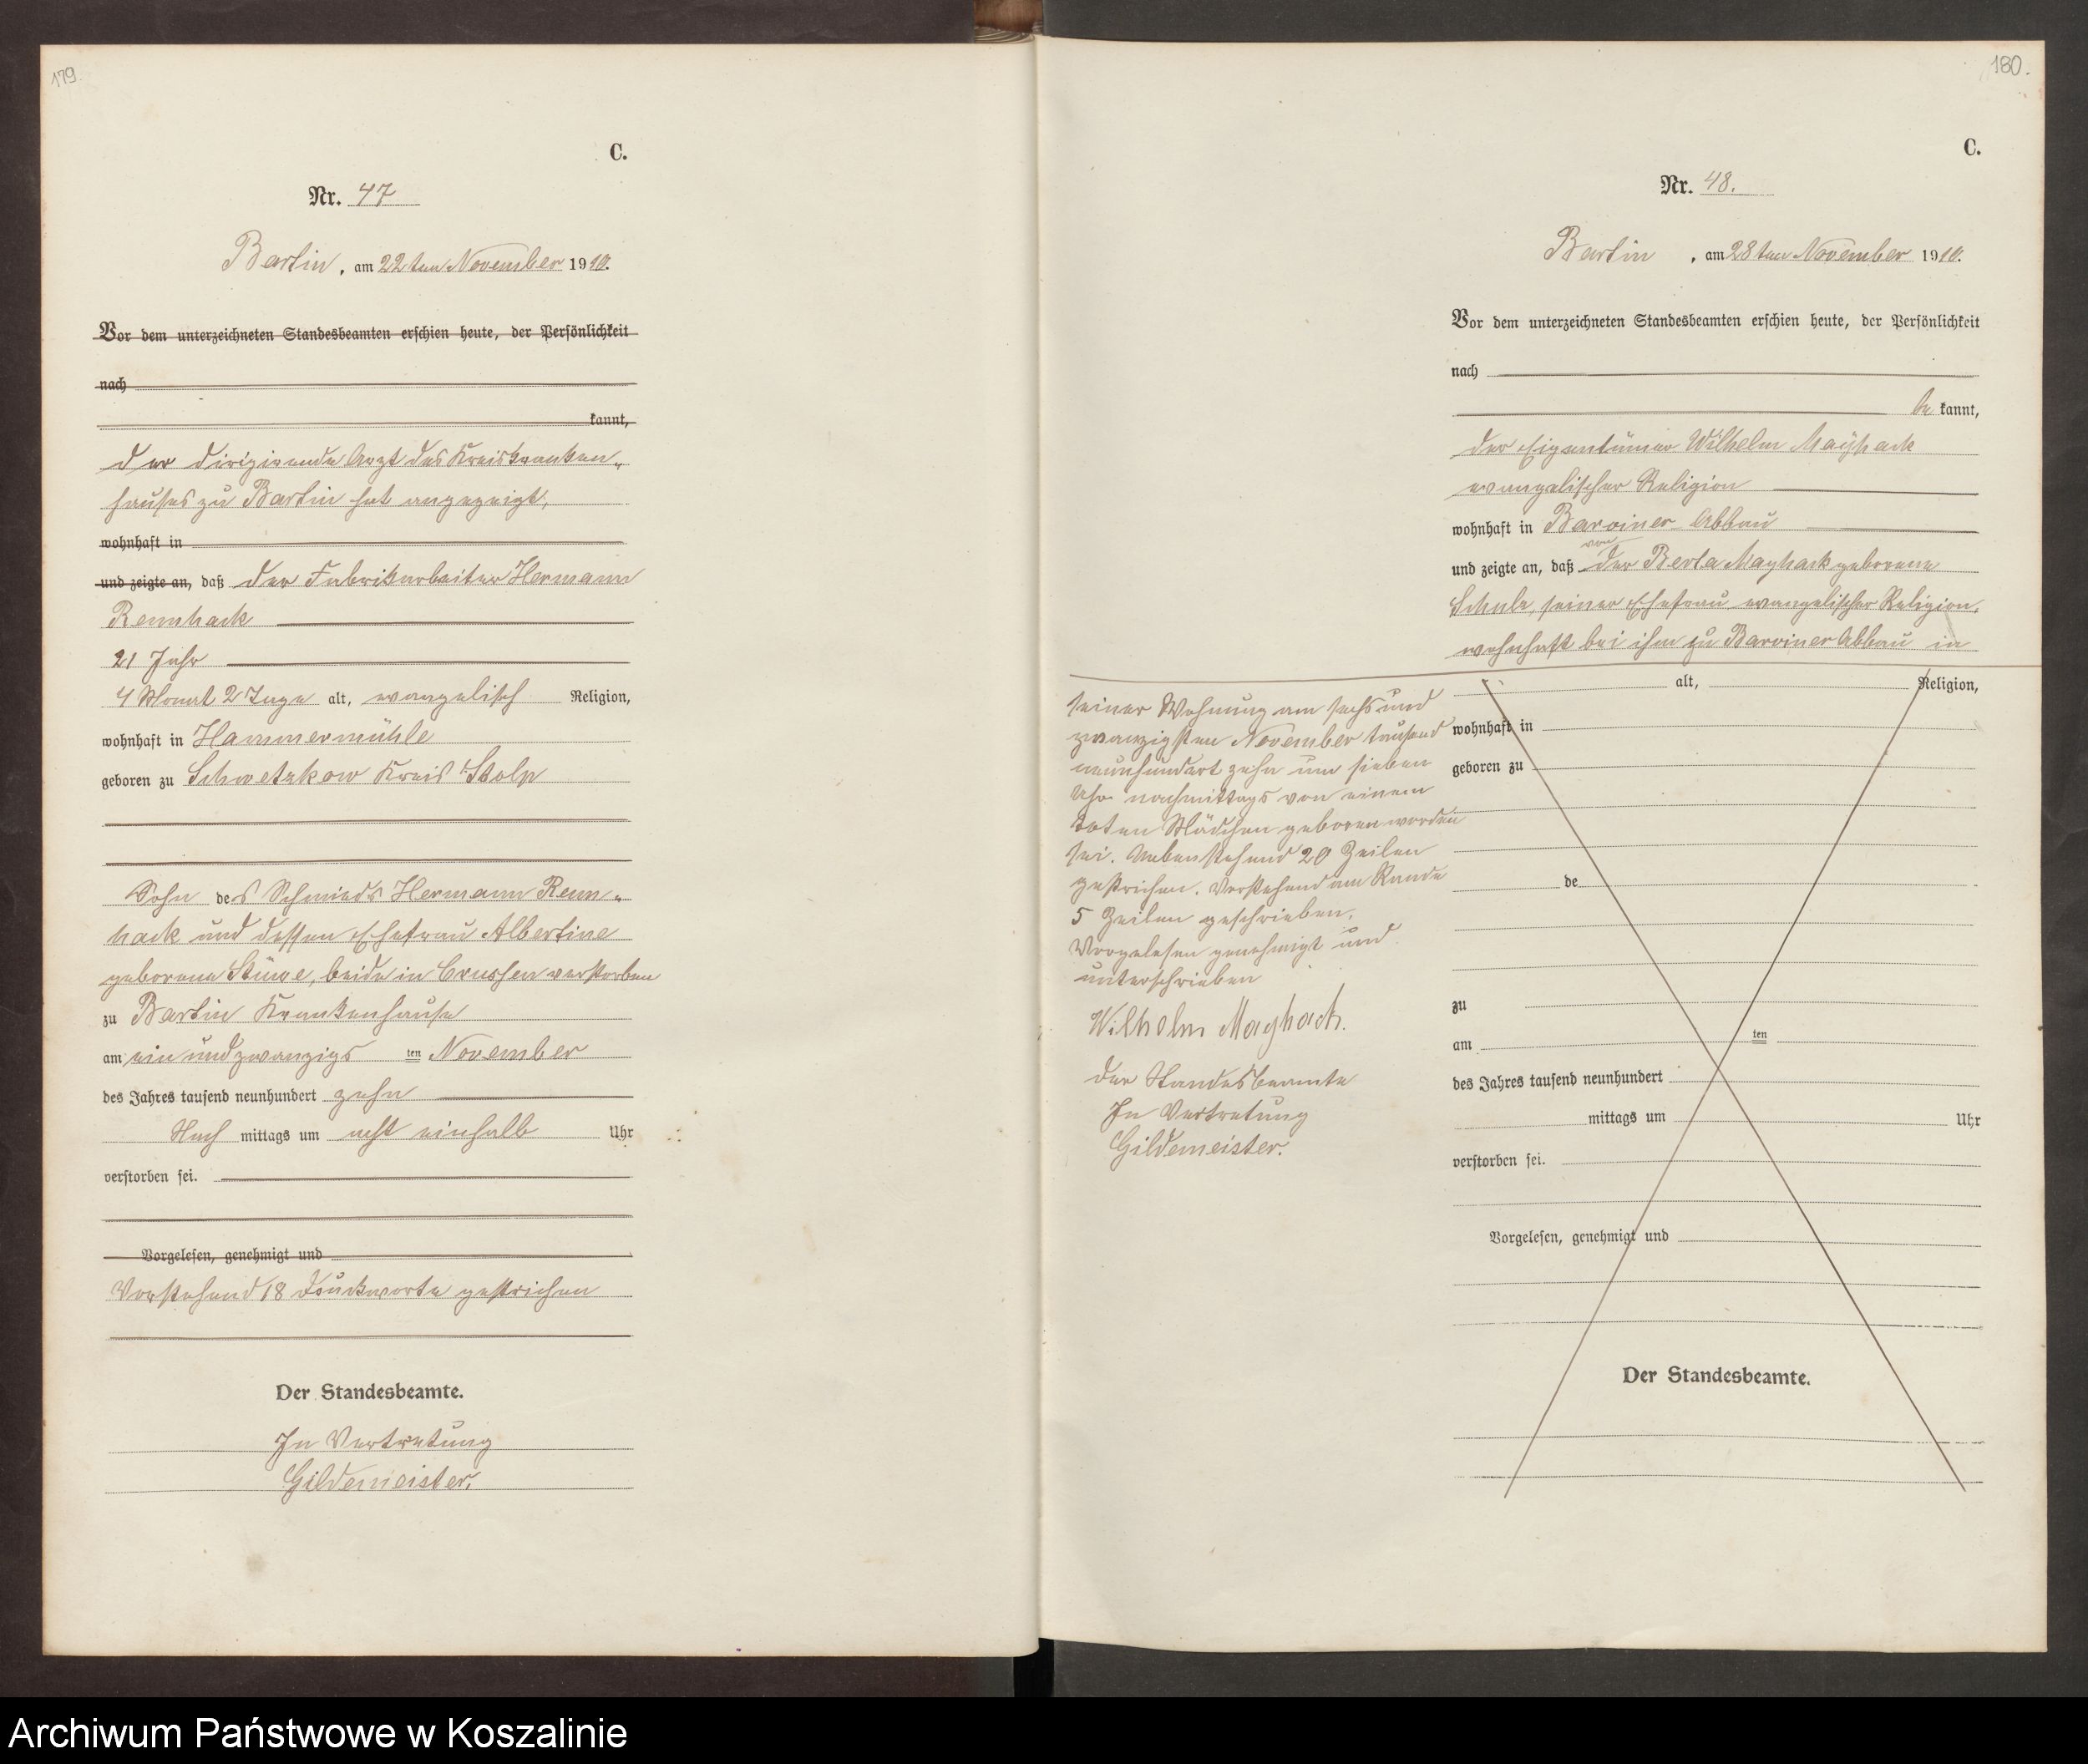 179.
C.
Nr. 47
Bartin, am 22ten November 1910.
Vor dem unterzeichneten Standesbeamten erschien heute, der Persönlichkeit
nach
kannt,
der dirigirende Arzt des Kreiskranken-
hauses zu Bartin hat angezeigt,
wohnhaft in
und zeigte an, daß der Fabrikarbeiter Hermann
Rennhack
21 Jahr
4 Monat 2 Tage alt, evangelisch Religion,
wohnhaft in Hammermühle
geboren zu Schwetzkow Kreis Stolp
Sohn des Schmieds Hermann Renn-
hack und dessen Ehefrau Albertine
geborene Stüwe, beide in Crussen verstorben
zu Bartin Krankenhause
am ein und zwanzigsten November
des Jahres tausend neunhundert zehn
Nachmittags um acht einhalb Uhr
verstorben sei.
Vorgelesen, genehmigt und
Vorstehend 18 Druckworte gestrichen
Der Standesbeamte.
In Vertretung
Gildemeister.
180.
C.
Nr. 48.
Bartin, am 28ten November 1910.
Vor dem unterzeichneten Standesbeamten erschien heute, der Persönlichkeit
nach
be kannt,
der Eigentümer Wilhelm Mayhack
evangelischer Religion
wohnhaft in Barviner Abbau
von
und zeigte an, daß der Berta Mayhack geborene
Schulz, seiner Ehefrau evangelischer Religion,
wohnhaft bei ihm zu Barviner Abbau in
seiner Wohnung am sechs und
zwanzigsten November tausend
neunhundert zehn um sieben
Uhr nachmittags von einem
toten Mädchen geboren worden
sei. Nebenstehend 20 Zeilen
gestrichen. Vorstehend am Rande
5 Zeilen geschrieben.
Vorgelesen genehmigt und
unterschrieben
Wilhelm Mayhack.
Der Standesbeamte
In Vertretung
Gildemeister.
alt, Religion,
wohnhaft in
geboren zu
de
zu
am ten
des Jahres tausend neunhundert
mittags um Uhr
verstorben sei.
Vorgelesen, genehmigt und
Der Standesbeamte.
Archiwum Państwowe w Koszalinie